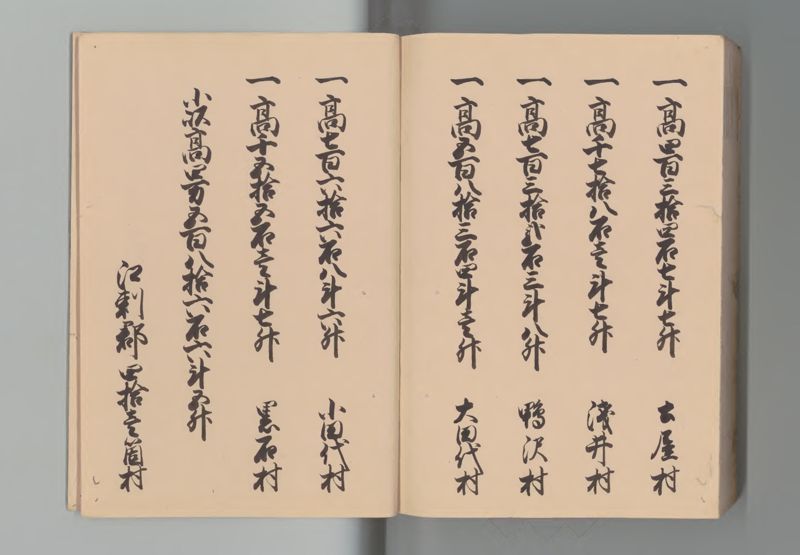 一高四百三拾四石七斗七升 土屋村
一高千七拾八石壱斗七升 浅井村
一高七百三拾弐石三斗八升 鴨沢村
一高五百八拾三石四斗壱升 大田代村
一高七百六拾六石八斗六升 小田代村
一高千五拾五石壱斗七升 黒石村
小以高四万五百八拾六石六斗五升
江刺郡四拾壱箇村